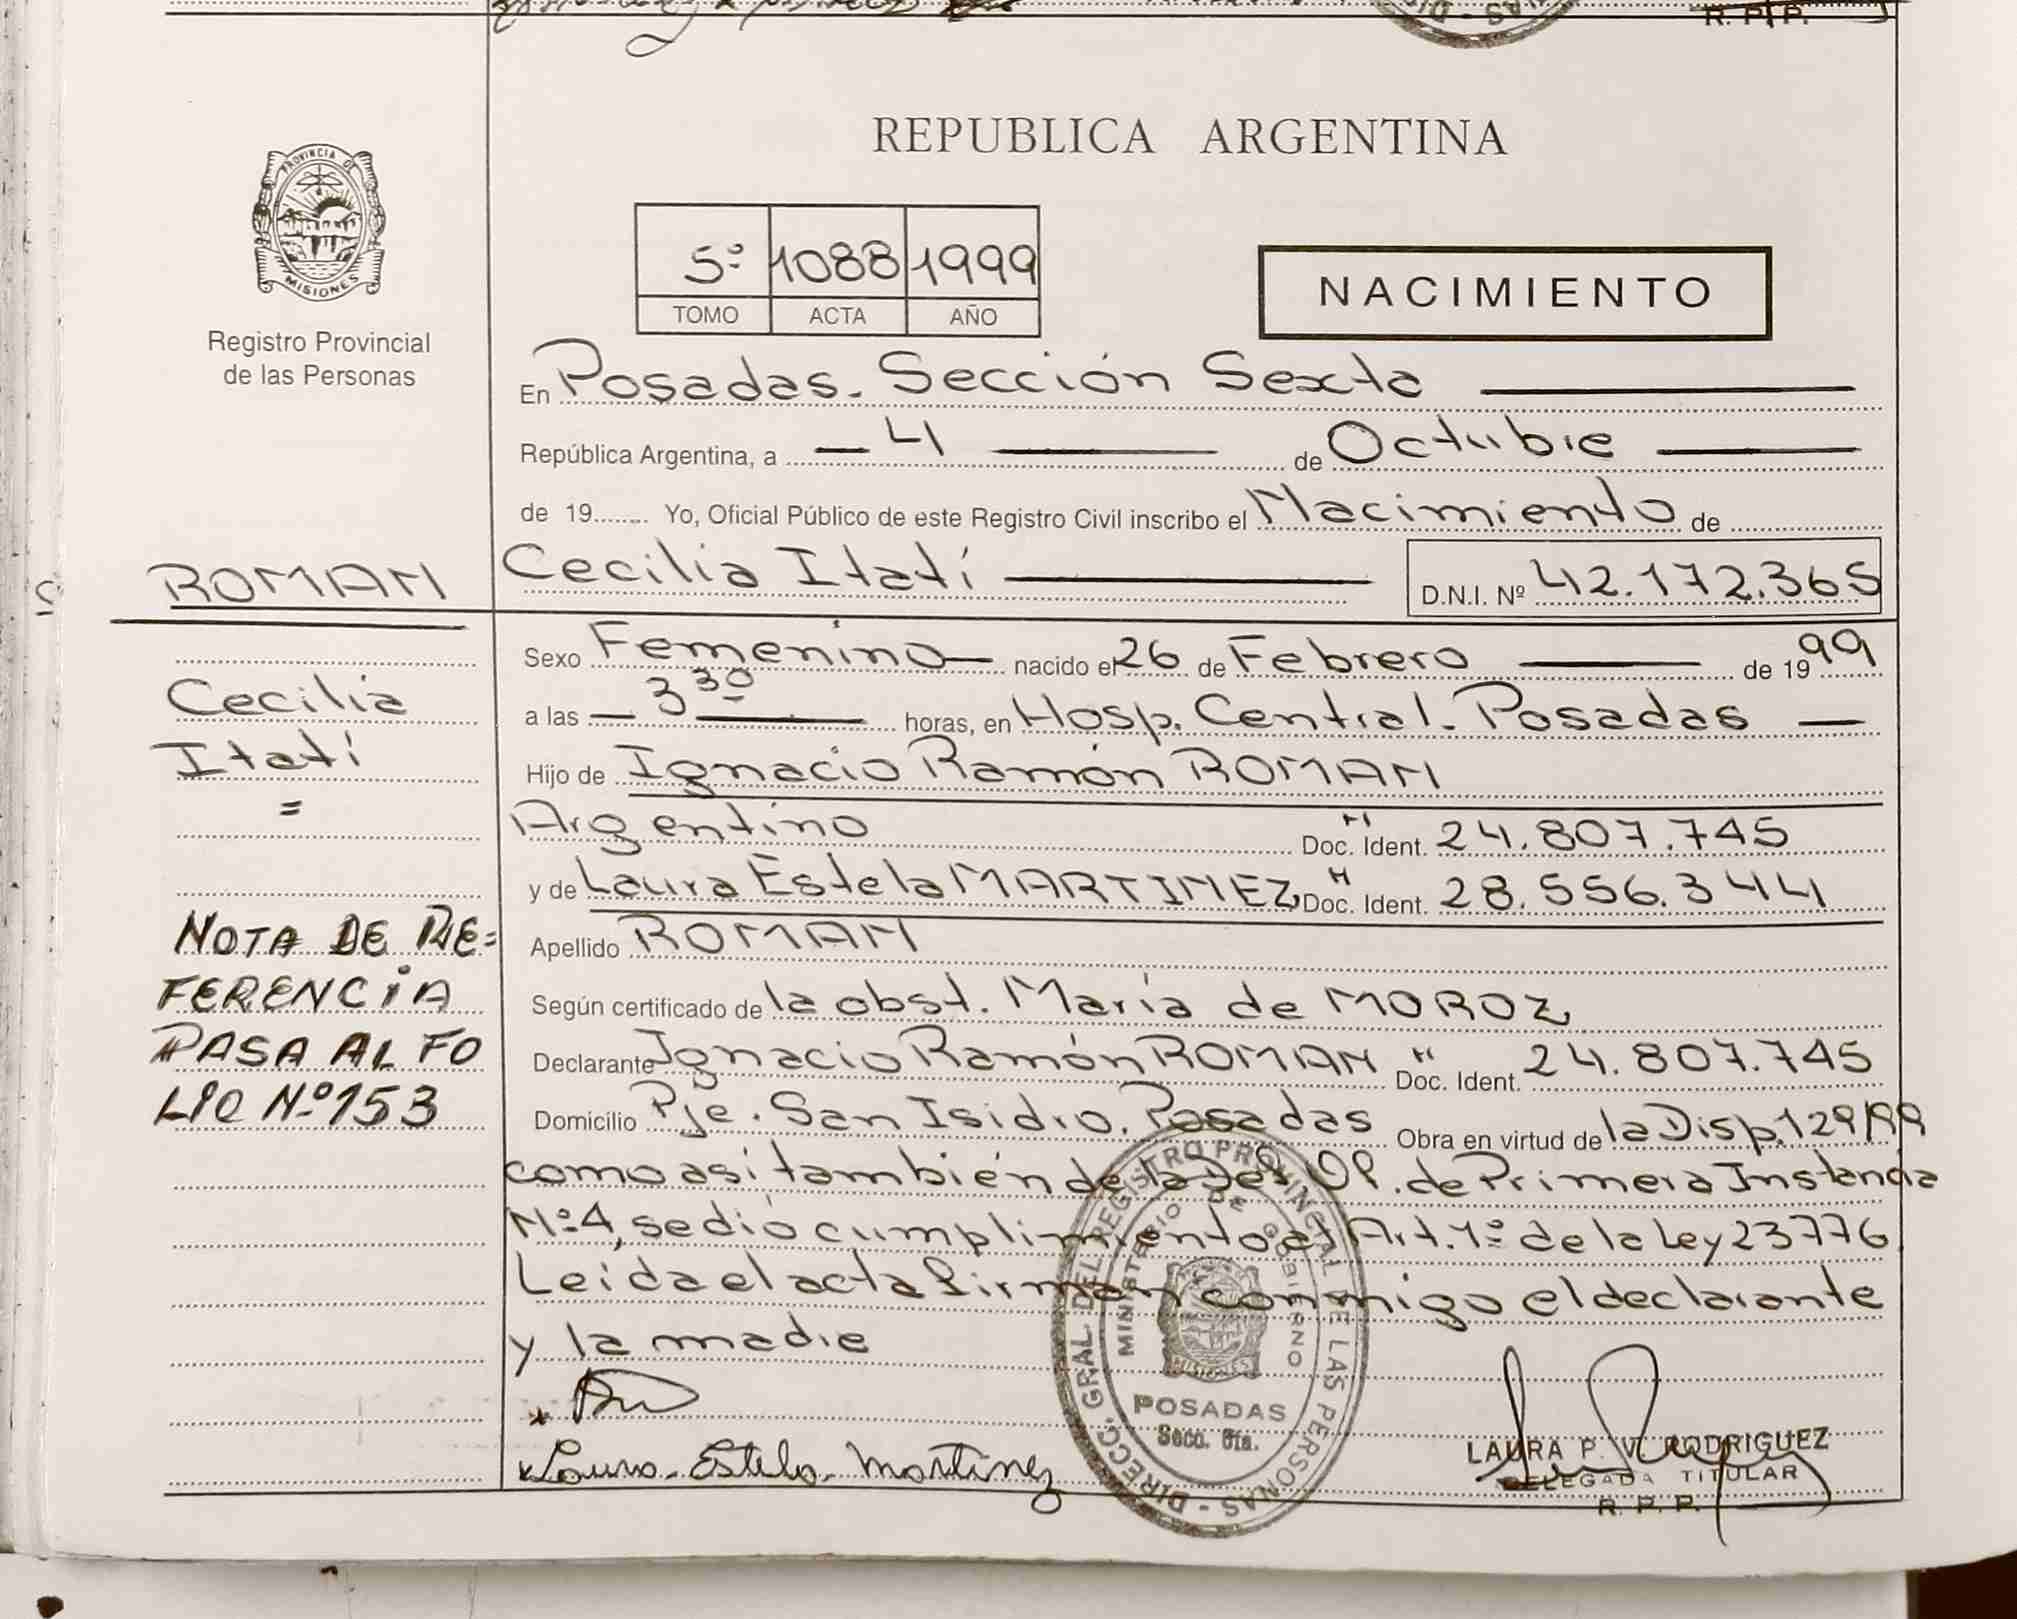 R. P. P.
PROVINCIA DE
MISIONES
Registro Provincial
de las Personas
REPUBLICA ARGENTINA
5º 1088 1999
TOMO ACTA AÑO
NACIMIENTO
En Posadas. Sección Sexta
República Argentina, a 4 de Octubre
de 19........ Yo, Oficial Público de este Registro Civil inscribo el Nacimiento de
ROMAN Cecilia Itatí D.N.I. Nº 42.172.365
Sexo Femenino nacido el 26 de Febrero de 1999
Cecilia a las 3 30 horas, en Hosp. Central. Posadas
Itatí Hijo de Ignacio Ramón ROMAN
= Argentino Doc. Ident. 24.807.745
y de Laura Estela MARTINEZ Doc. Ident. 28.556.344
NOTA DE RE= Apellido ROMAN
FERENCIA Según certificado de la obst. María de MOROZ
PASA AL FO Declarante Ignacio Ramón ROMAN Doc. Ident. 24.807.745
LIO Nº 153 Domicilio Pje. San Isidro. Posadas Obra en virtud de la Disp. 129/99
como así también de la Of. de Primera Instancia
Nº 4, se dió cumplimiento al Art. 1º de la Ley 23776
Leida el acta firman conmigo el declarante
y la madre
Laura Estela Martinez
DIRECC. GRAL. DEL REGISTRO PROVINCIAL DE LAS PERSONAS
MINISTERIO DE GOBIERNO
MISIONES
POSADAS
LAURA P. V. RODRIGUEZ
DELEGADA TITULAR
R. P. P.